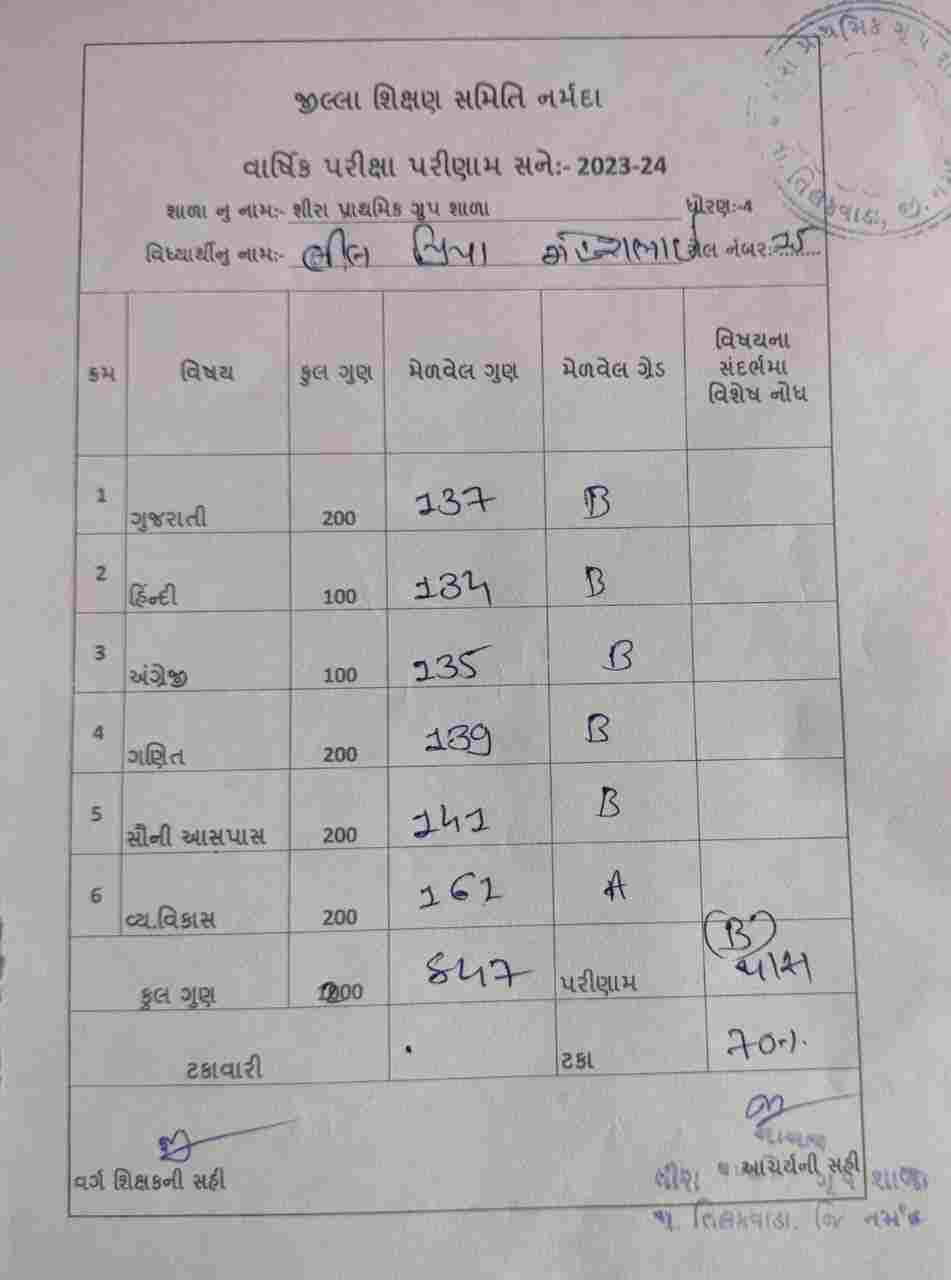 પ્રાથમિક ગ્રૂપ
તિલકવાડા, જી.
જીલ્લા શિક્ષણ સમિતિ નર્મદા
વાર્ષિક પરીક્ષા પરીણામ સનેઃ- 2023-24
શાળા નુ નામઃ- શીરા પ્રાથમિક ગ્રુપ શાળા ધોરણઃ-4
વિધ્યાર્થીનુ નામઃ- ભીલ રોલ નંબર:75
ક્રમ વિષય કુલ ગુણ મેળવેલ ગુણ મેળવેલ ગ્રેડ વિષયના સંદર્ભમા વિશેષ નોધ
1 ગુજરાતી 200 137 B
2 હિંન્દી 100 134 B
3 અંગ્રેજી 100 135 B
4 ગણિત 200 139 B
5 સૌની આસપાસ 200 141 B
6 વ્ય.વિકાસ 200 161 A
કુલ ગુણ 1200 847 પરીણામ B પાસ
ટકાવારી ટકા 70%
વર્ગ શિક્ષકની સહી આચાર્યની સહી
શીરા ગૃપ શાળા
તિલકવાડા. જિ નર્મદા